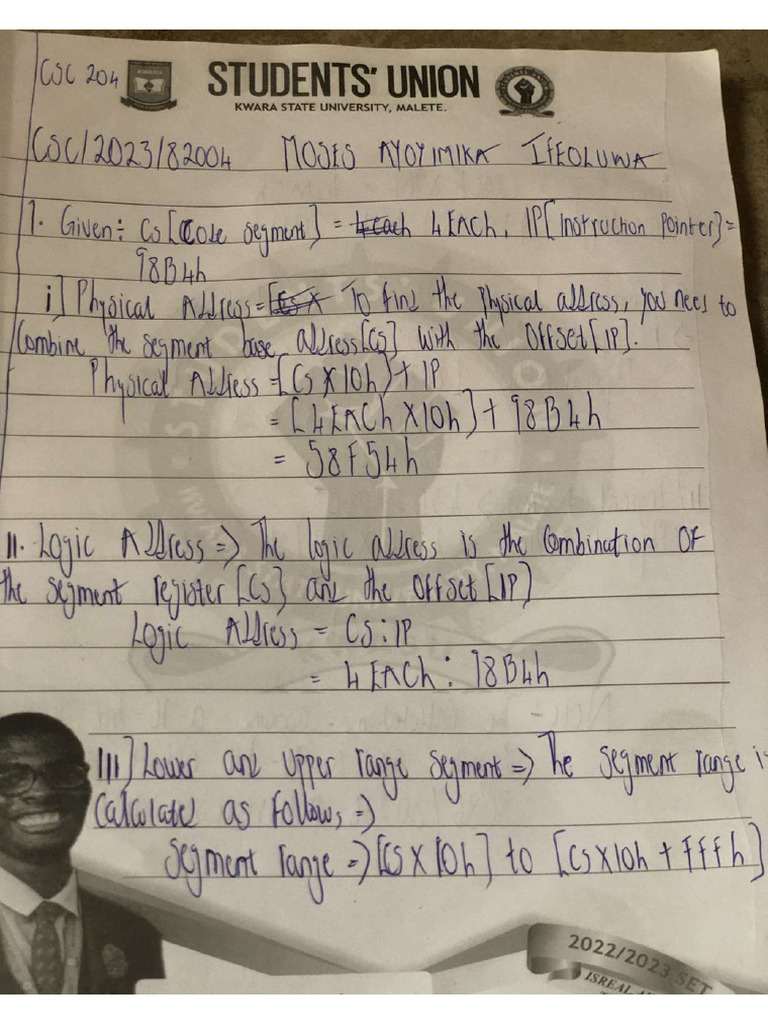 CSC 204
STUDENTS' UNION
KWARA STATE UNIVERSITY, MALETE.
CSC/2023/82004 MOSES AYOYIMIKA IFEOLUWA
1. Given: CS [Code Segment] = 4each 4EACh, IP [Instruction Pointer] =
98B4h
i] Physical Address = [CS X To find the Physical address, you need to
Combine the segment base address [CS] with the Offset [IP].
Physical Address = [CS X 10h) + IP
= [4EACh X 10h] + 98B4h
= 58F54h
II. Logic Address => The logic address is the Combination OF
the segment register [CS] and the Offset [IP]
Logic Address = CS : IP
= 4EACh : 98B4h
III] Lower and Upper range segment => The segment range is
Calculated as follow, =>
Segment range => [CS X 10h] to [CS X 10h + ffffh]
2022/2023 SET
ISREAL